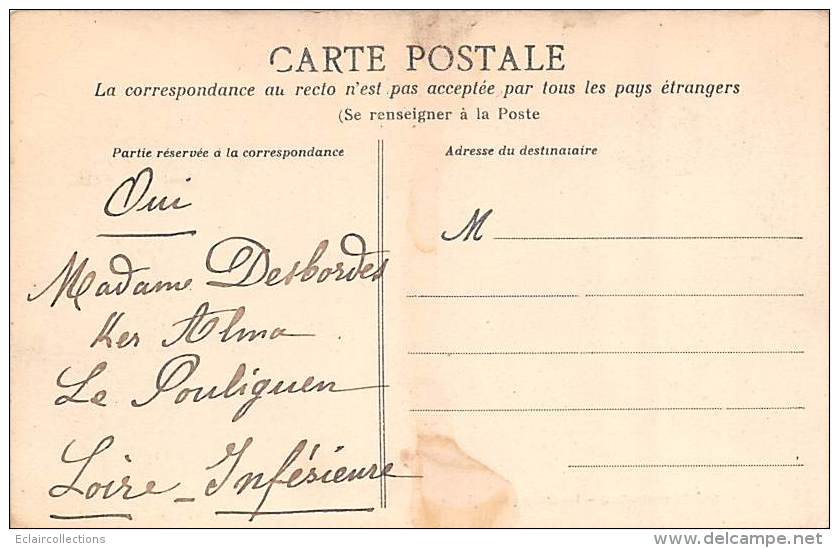 CARTE POSTALE
La correspondance au recto n'est pas acceptée par tous les pays étrangers
(Se renseigner à la Poste
Partie réservée a la correspondance
Oui
Madame Desbordes
Ker Alma
Le Pouliguen
Loire - Inférieure
Adresse du destinataire
M
Eclaircollections
www.delcampe.net